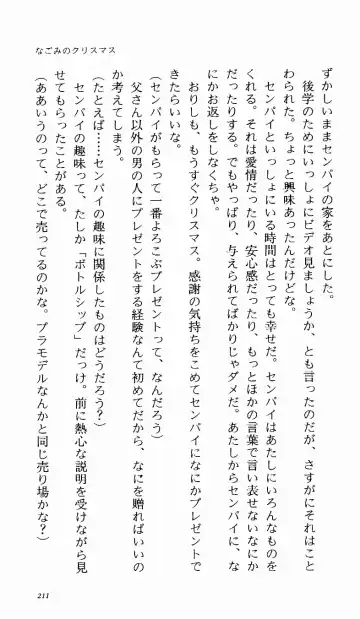 なごみのクリスマス
ずかしいままセンパイの家をあとにした。
後学のためにいっしょにビデオ見ましょうか、とも言ったのだが、さすがにそれはこと
わられた。ちょっと興味あったんだけどな。
センパイといっしょにいる時間はとっても幸せだ。センパイはあたしにいろんなものを
くれる。それは愛情だったり、安心感だったり、もっとほかの言葉で言い表せないなにか
だったりする。でもやっぱり、与えられてばかりじゃダメだ。あたしからセンパイに、な
にかお返しをしなくちゃ。
おりしも、もうすぐクリスマス。感謝の気持ちをこめてセンパイになにかプレゼントで
きたらいいな。
(センパイがもらって一番よろこぶプレゼントって、なんだろう)
父さん以外の男の人にプレゼントをする経験なんて初めてだから、なにを贈ればいいの
か考えてしまう。
(たとえば……センパイの趣味に関係したものはどうだろう?)
センパイの趣味って、たしか「ボトルシップ」だっけ。前に熱心な説明を受けながら見
せてもらったことがある。
(ああいうのって、どこで売ってるのかな。プラモデルなんかと同じ売り場かな?)
211